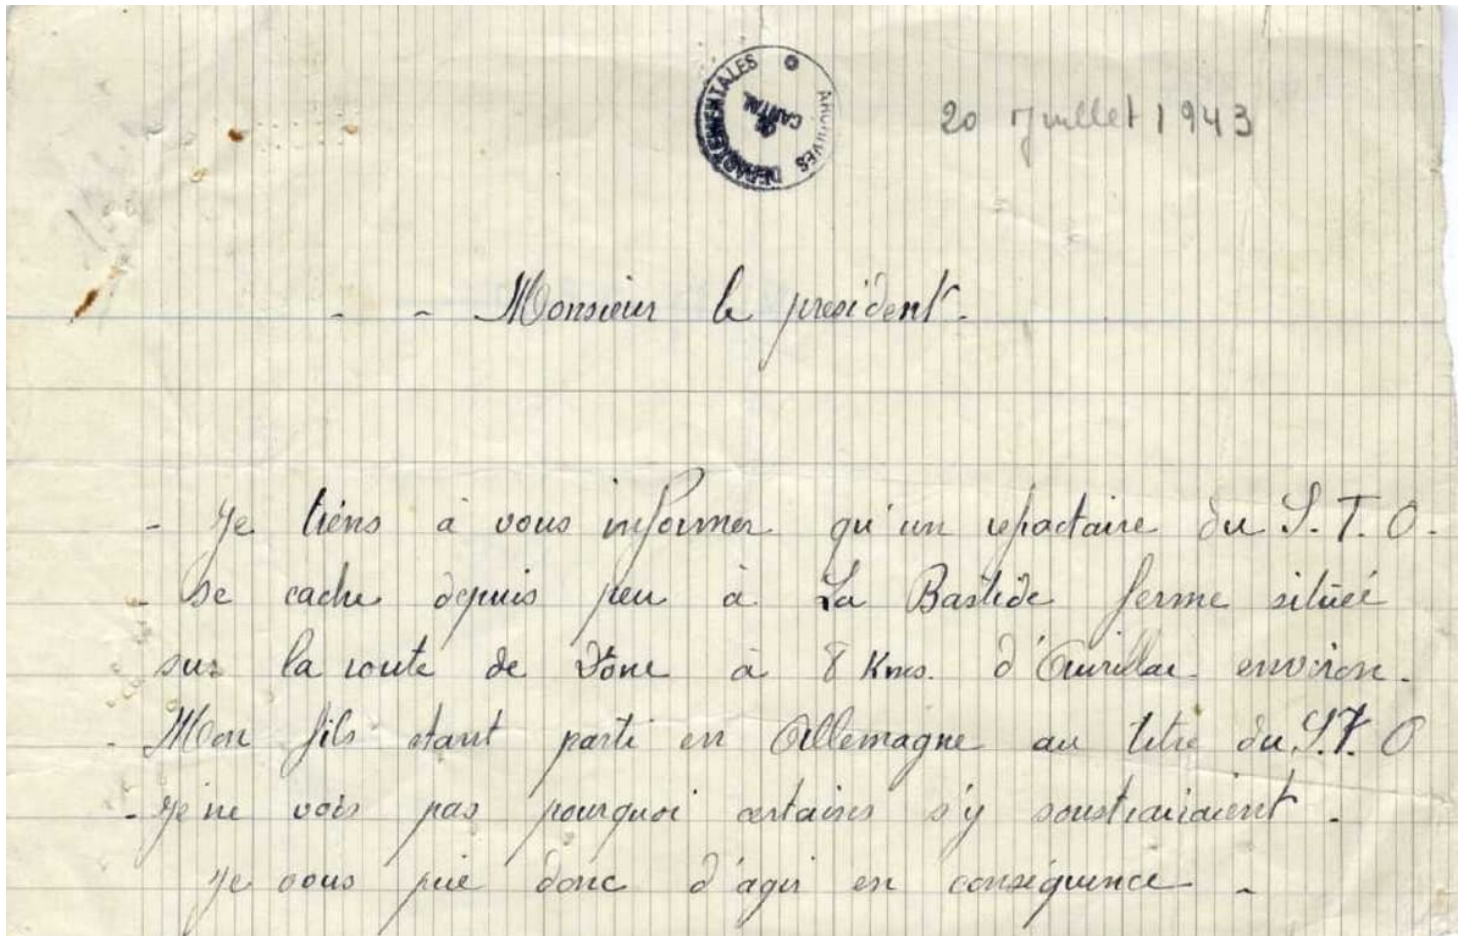 ARCHIVES DEPARTEMENTALES
CANTAL
20 Juillet 1943
- - Monsieur le president.
- Je tiens à vous informer qu'un refractaire du S.T.O.
- se cache depuis peu à La Bastide ferme située
sur la route de Vône à 8 Kms. d'Aurillac environ.
- Mon fils étant parti en Allemagne au titre du S.T.O
- Je ne vois pas pourquoi certains s'y soustrairaient.
Je vous prie donc d'agir en conséquence -